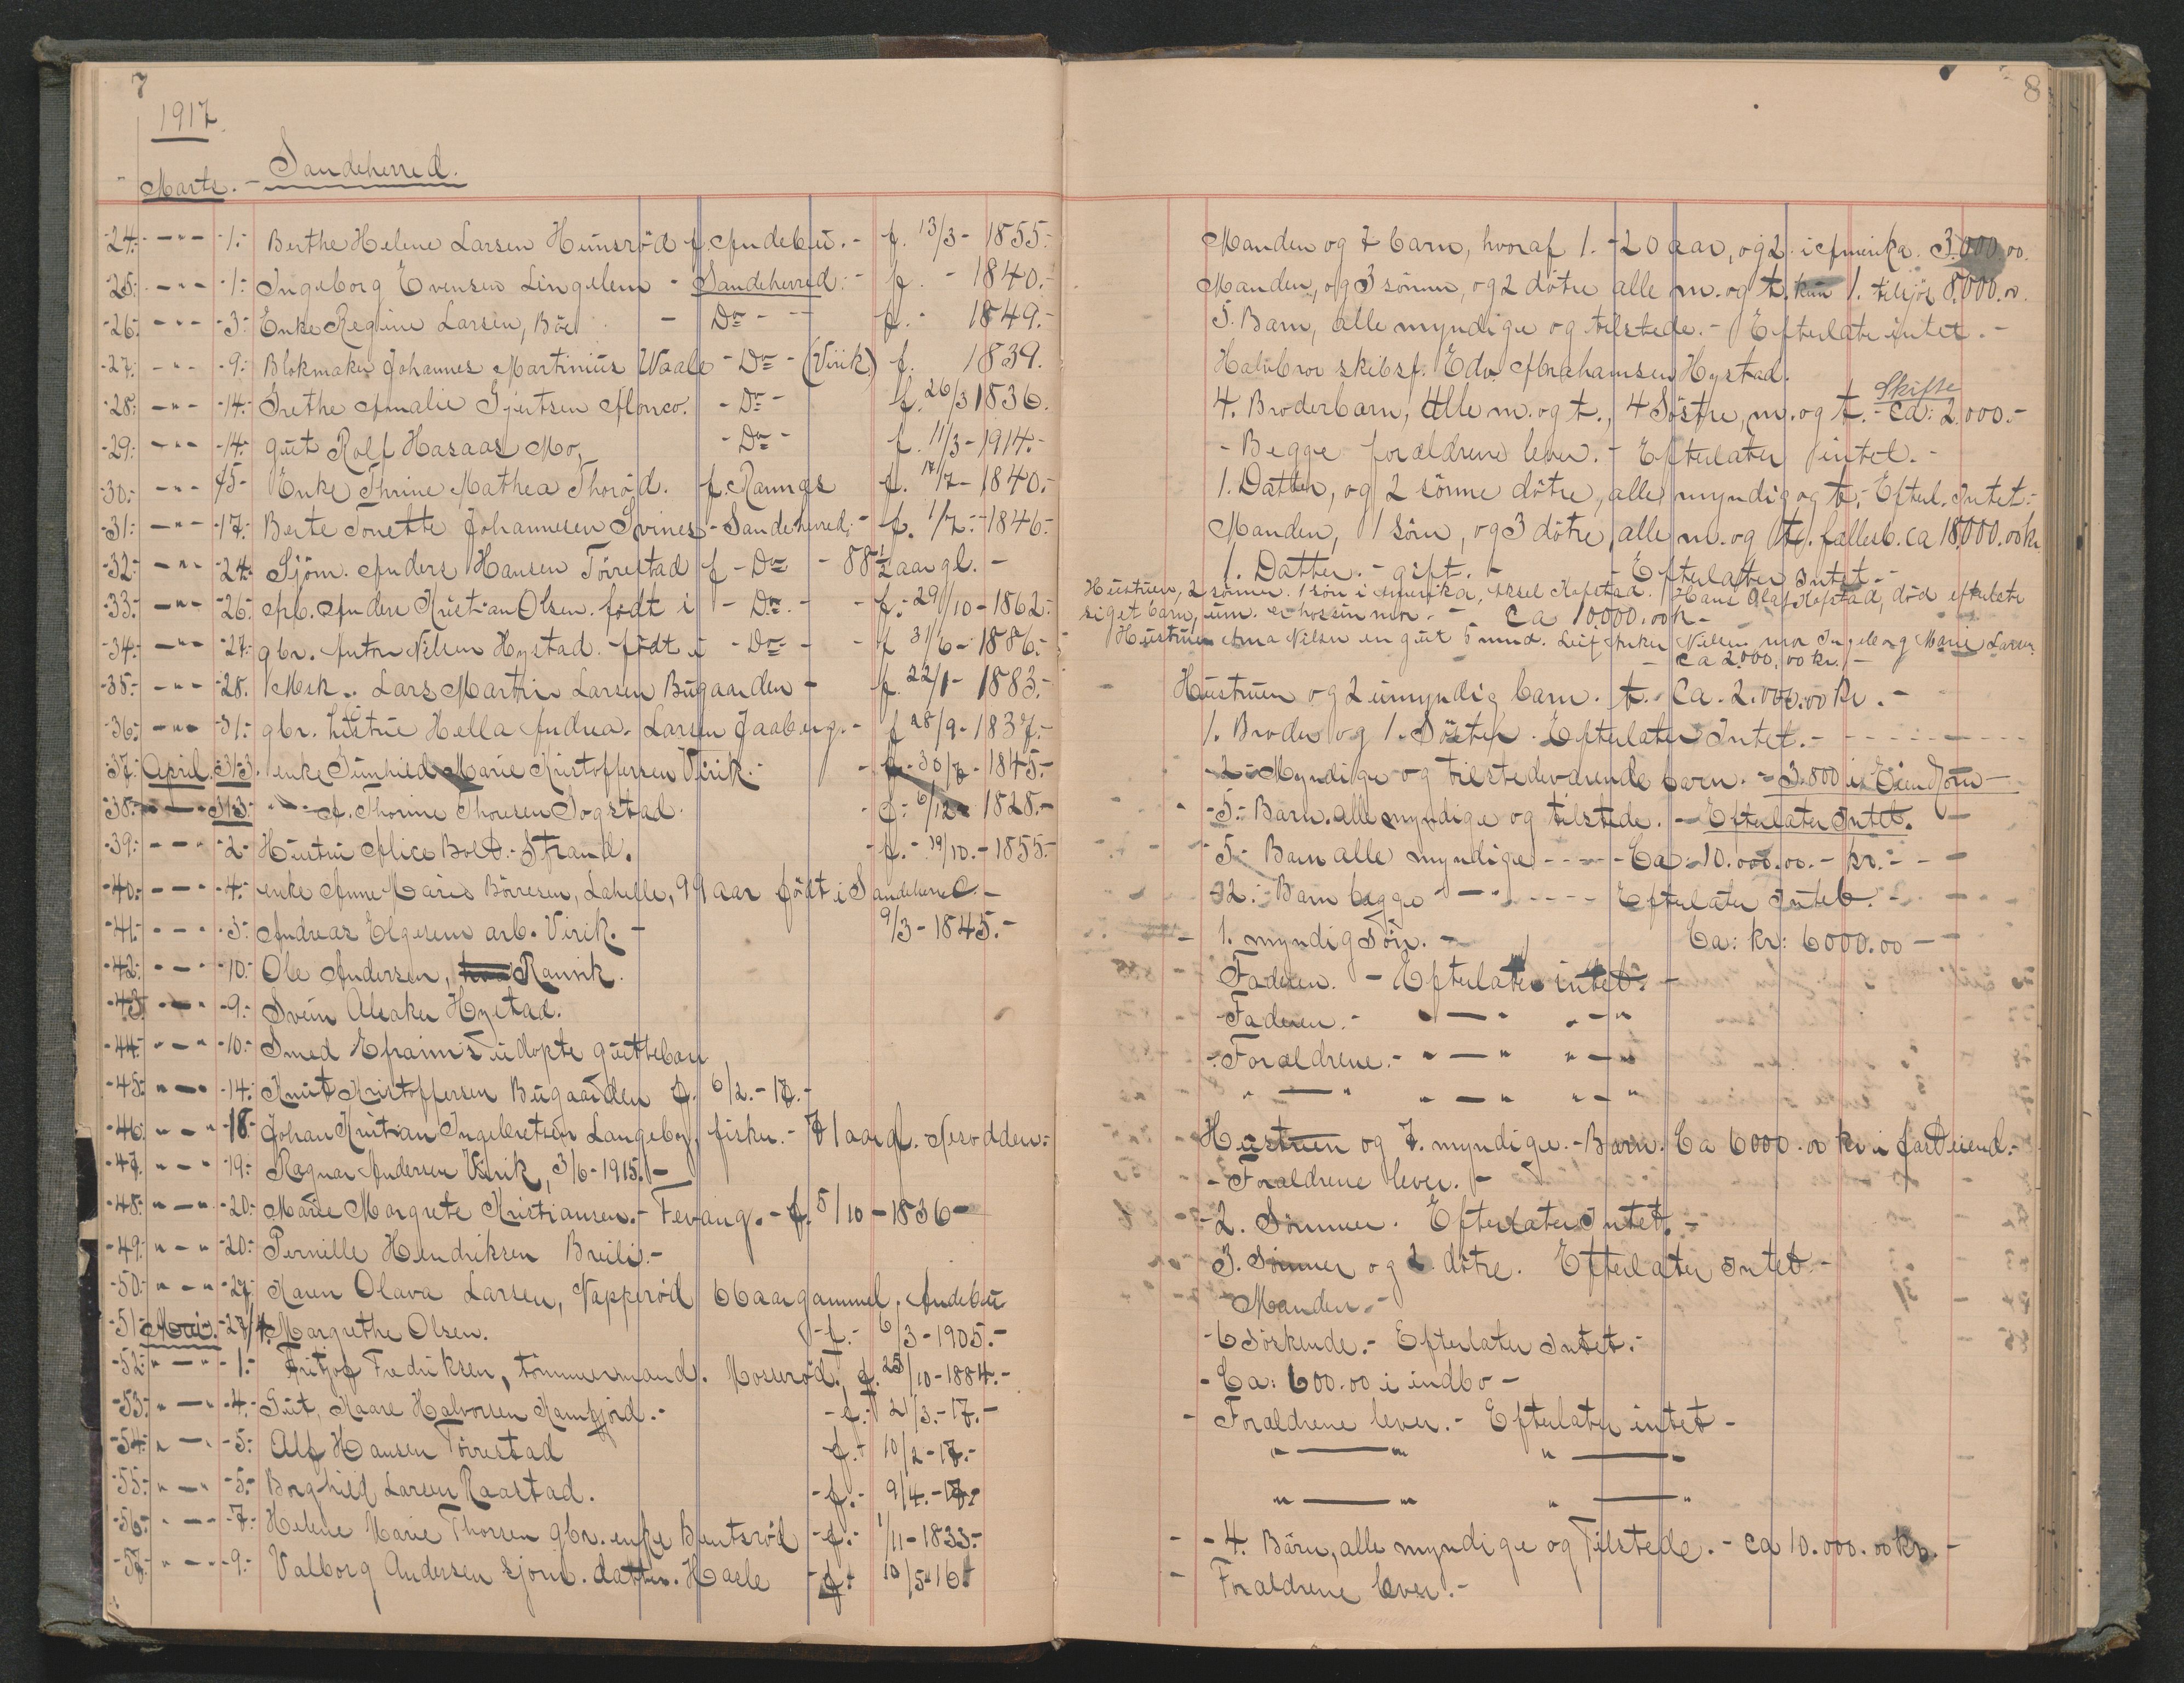 7
1917.
Marts. - Sandeherred.
-24.- -"- -1.- Berthe Helene Larsen Hunsrød f. Andebu. - f. 13/3 - 1855.-
-25.- -"- -1.- Ingeborg Evensen Lingelem - Sandeherred. - f. - 1840.-
-26.- -"- -3.- Enke Regine Larsen, Bøe - Do - f. - 1849.-
-27.- -"- -9.- Blokmaker Johannes Martinius Waale - Do - (Virik) f. 1839.
-28.- -"- -14.- Grethe Amalie Gjertsen - Do - f. 26/3 1836.
-29.- -"- -14.- gut Rolf Hasaas Mo, - Do - f. 11/3 - 1914.-
-30.- -"- 15- Enke Thrine Mathea Thorød. f. Ramnes f. 17/7 - 1840.-
-31.- -"- -17.- Berte Tonette Johannesen Svines - Sandeherred.- f. 1/7.- 1846.-
-32.- -"- -24.- Sjöm. Anders Hansen Törrestad f - Do - 88 1/2 aar gl. -
-33.- -"- -26.- arb. Andere Kristian Olsen. födt i - Do. - f.- 29/10 - 1862.-
-34.- -"- -27.- gbr. Anton Nilsen Hystad. födt i - Do - f 31/6 - 1886.-
-35.- -"- -28. Mek.. Lars Martin Larsen Bugaarden - f. 22/1 - 1883.-
-36.- -"- -31.- gbr. hustrue Hella Andrea. Larsen Jaaberg. - f 28/9 - 1837.-
-37. April. 31/3. enke Gunhild Marie Kristoffersen Virik. - f - 30/7 - 1845.-
-38.- -"- 31/3. -"- A. Thorine Thoresen Sogstad. - f.- 6/12 - 1828.-
-39.- -"- -2- Hustru Alice Boed.- Strand. - f.- 19/10.- 1855.-
-40.- -"- -4.- enke Anne Maria Börresen, Lahelle, 99 aar födt i Sandeherred. -
-41.- -"- -5.- Andreas Elgesem arb. Virik. - 9/3 - 1845.-
-42.- -"- -10.- Ole Andersen, Ranvik.
-43. -"- -9.- Svein Aleaker Hystad.
-44.- "-" -10.- Smed Efraims udøpte guttebarn
-45.- "-" -14.- Knut Kristoffersen Bugaarden f. 6/2.- 17.-
-46.- "-" -18.- Johan Kristian Ingebretsen Langeby, fisker. - 71 aar gl. Nesodden.-
-47.- "-" -19.- Ragnar Andersen Virik, 3/6 - 1915. -
-48.- "-" -20.- Marie Margrete Kristiansen. - Fevang. - f. 5/10 - 1836 -
-49.- "-" -20.- Pernille Hendriksen Breili.-
-50.- "-" -27.- Karen Olava Larsen, Napperød 66 aar gammel. Andebu
-51- Mai. -27/4. Margrethe Olsen. - f.- 6/3 - 1905.-
-52.- "-" -1.- Fritjof Fredriksen, tömmermand. Moserød., f. 25/10 - 1884.-
-53.- "-" -4.- Gut, Kaare Halvorsen Kamfjord.- - f.- 21/3.- 17.-
-54.- "-" -5.- Alf Hansen Törrestad - f.- 10/2 - 17.-
-55.- "-" -5.- Borghild Larsen Raastad. - f.- 9/4.- 17.
-56.- "-" -7.- Helene Marie Thorsen gbr. enke Bentsrød - f.- 1/11 - 1833.-
-57.- "-" -9.- Valborg Andersen sjöm. datter. Hasle - f.- 10/5 - 16.-
8
Manden og 7 barn, hvoraf 1. - 20 aar, og 2. i Amerika. 3.000,00.
Manden, og 3 sönner, og 2 dötre alle m. og t. kun 1. tilsjös 8.000.00.
5. Barn, alle myndige og tilstede.- Efterlater intet. -
Halvbror skibsf. Edv. Abrahamsen Hystad.
Skifte
4. Broderbarn, alle m. og t., 4 Söstre, m. og t. - Ca: 2.000.-
- Begge forældrene lever. - Efterlater intet. -
1. Datter, og 2 sönne dötre, alle myndig og t.- Efterl. Intet.-
Manden, 1 sön, og 3 dötre, alle m. og t. fællesb. ca 18.000.00 kr
1. Datter. - gift. - - Efterlatter Intet.-
Hustruen, 2 sönner. 1 sön i Amerika, Aksel Kafstad. Hans Olaf Kafstad, död efterlate
siget barn, um. er hos sin mor. - Ca 10.000.00 k-
Hustruen Anna Nilsen en gut 5 mnd. Leif Anker Nilsen mor Ingeborg Marie Larsen
- Ca 2.000,00 kr. -
Hustruen og 2 umyndig barn. t. Ca. 2.000.00 Kr. -
1. Broder og 1. Söster. Efterlater Intet. - - - - - - -
- 2 - Myndige og tilstedeværende barn. - 3.800 i Eiendom -
- 5.- Barn. alle myndige og tilstede. - Efterlater Intet. -
- 5 - Barn alle myndige - - - - Ca: 10.000.00.- kr. - -
- 2.- Barn begge - " - - - - Efterlater Intet. -
- 1. myndig sön. - Ca: kr: 6000.00 -
Faderen. - Efterlater intet. -
Faderen. - " - " " - "
- Forældrene. - " - " " - "
" - " " - " " - "
Hustruen og 7. myndige. - Barn. Ca 6000.00 kr i fast eiend.-
- Forældrene lever. -
- 2. Sönner. Efterlater Intet. -
3. Sönner og 2. dötre. Efterlater Intet -
- Manden.-
- 6 söskende. - Efterlater Intet.-
- Ca: 600.00 i indbo -
- Forældrene lever. - Efterlater intet -
" - " " - "
" - " " - "
- - 4. Börn, alle myndige og Tilstede. - Ca 10.000.00 kr. -
- Forældrene lever. -